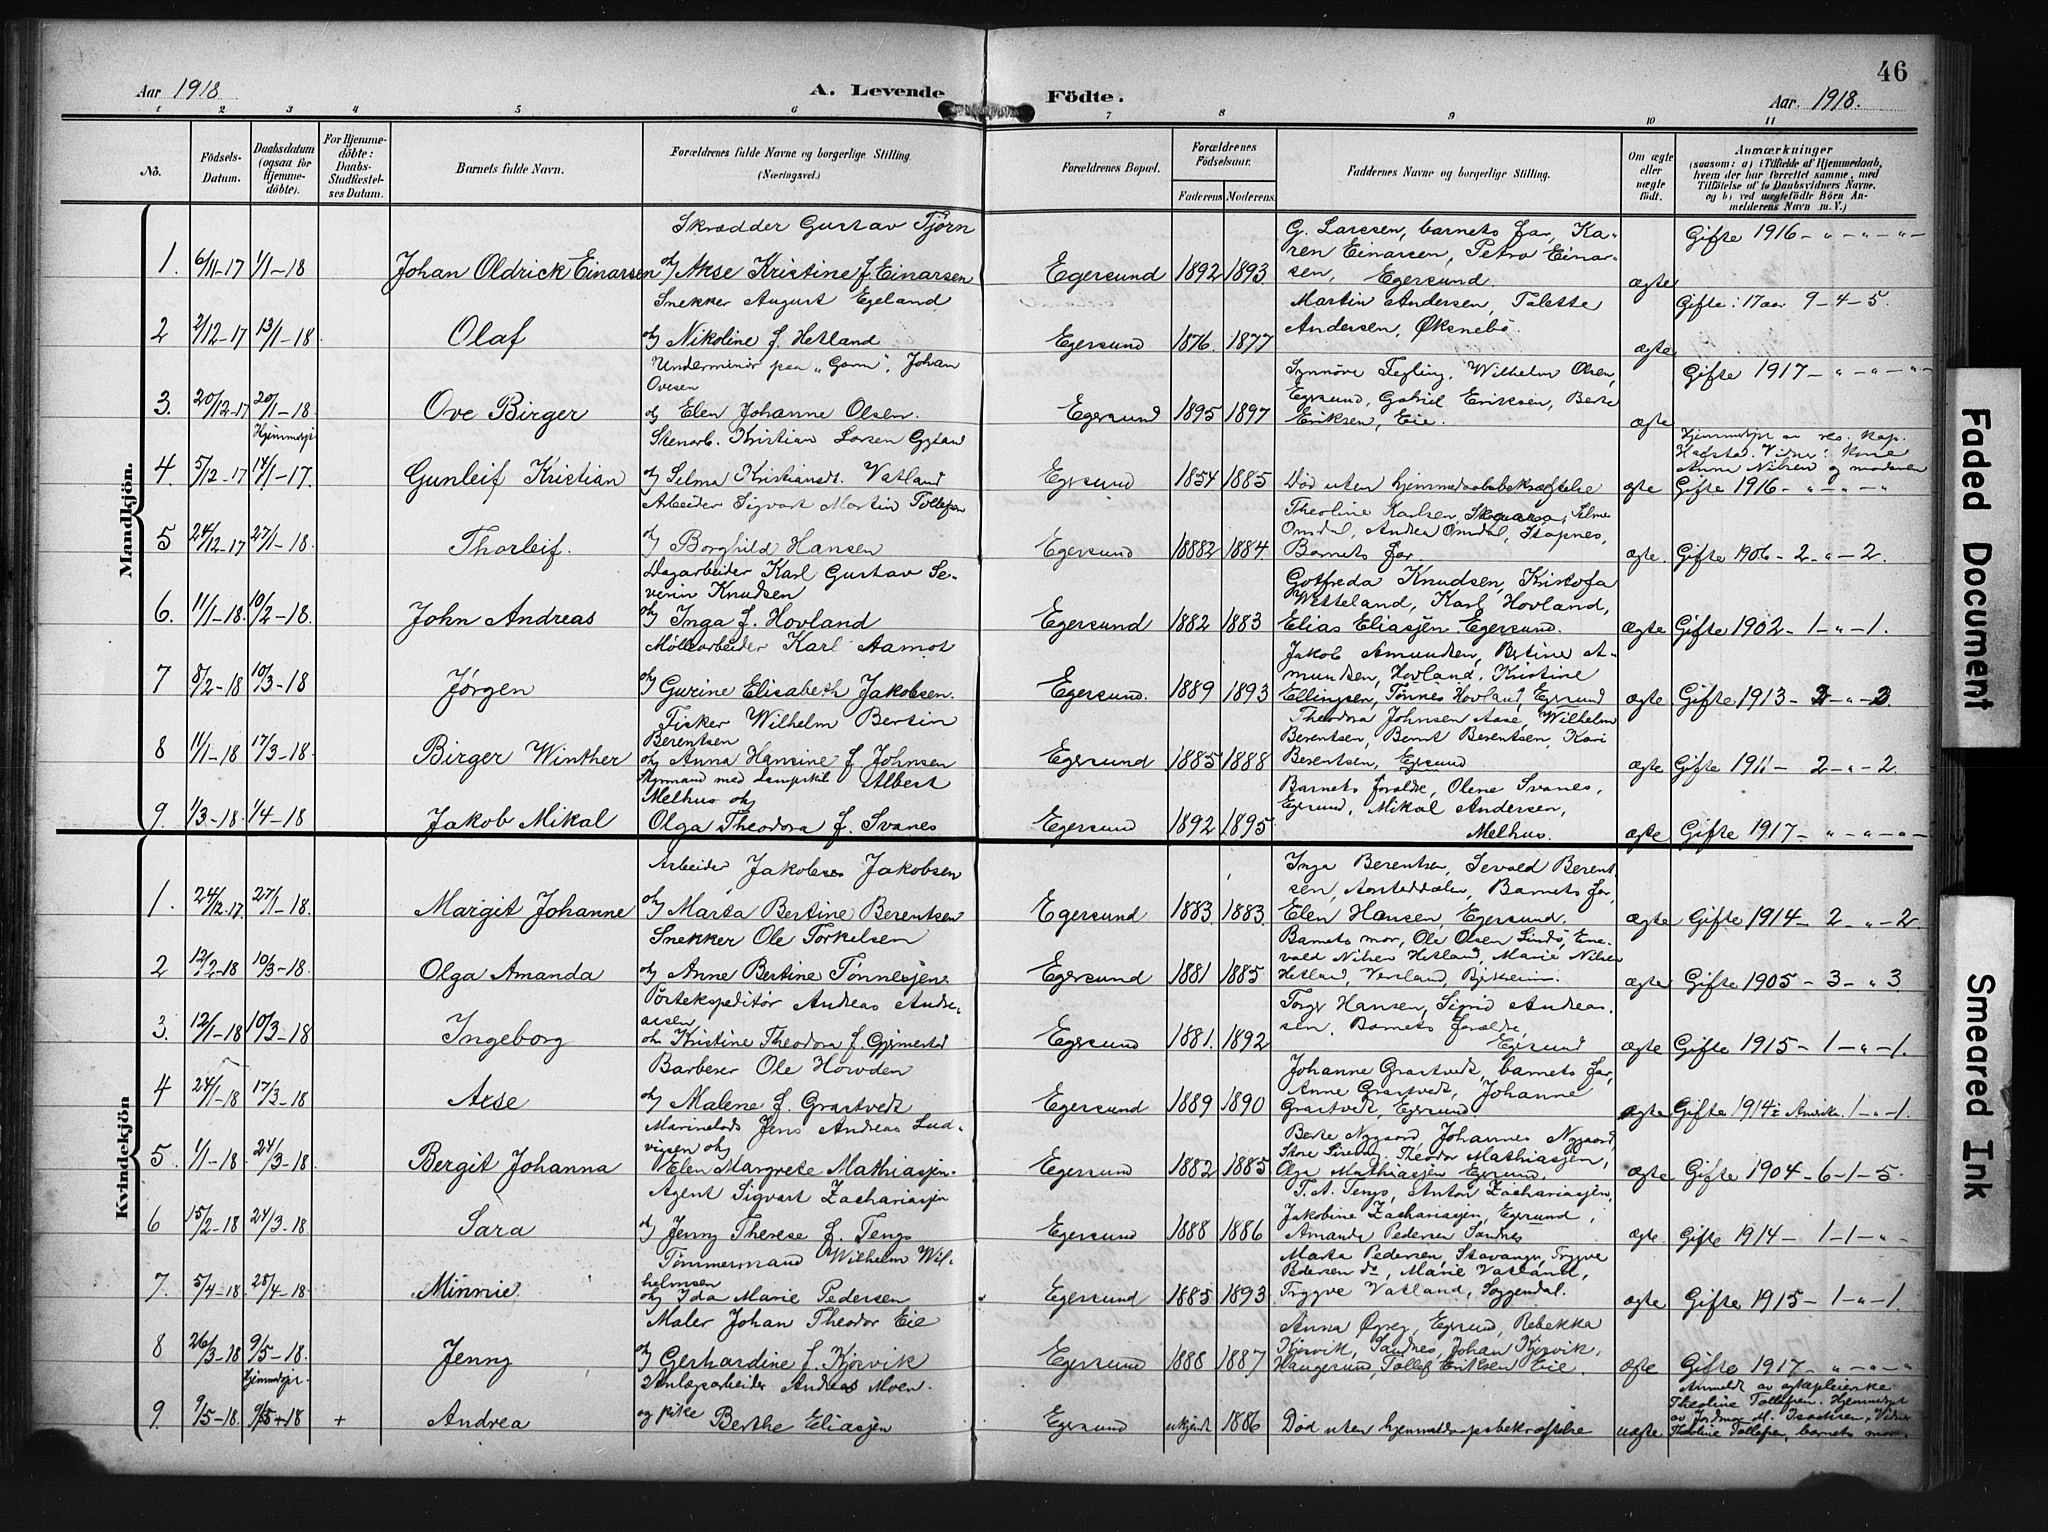 46
Aar 1918
A. Levende Födte.
Aar. 1918.
1 2 3 4 5 6 7 8 9 10 11
No.
Födsels-Datum.
Daabsdatum (ogsaa for Hjemme-döbte).
For Hjemme-döbte: Daabs-Stadfæstel-ses Datum.
Barnets fulde Navn.
Forældrenes fulde Navne og borgerlige Stilling. (Næringsvei.)
Forældrenes Bopæl.
Forældrenes Födselsaar.
Faderens Moderens
Faddernes Navne og borgerlige Stilling.
Om ægte eller uægte födt.
Anmærkninger
(saasom: a) i Tilfælde af Hjemmedaab, hvem der har forrettet samme, med Tilföielse af to Daabsvidners Navne, og b) ved uægtefödte Börn An-melderens Navn m. V.)
Mandkjön.
Skrædder Gustav Tjørn
G. Larssen, barnets far, Ka-
Gifte 1916 - " - " - " -
1. 6/11-17 1/1-18 Johan Oldrick Einarsen og Aase Kristine f. Einarsen Egersund 1892 1893 ren Einarsen, Petra Einar-
sen, Egersund. ægte
Snekker August Egeland
Martin Andersen, Talette
Gifte: 17 aar 9-4-5.
2 2/12-17 13/1-18 Olaf og Nikoline f. Hetland Egersund 1876. 1877 Andersen, Øksnebö. ægte
Underminör paa "Gam". Johan
Ovesen
Synnöve Tegling, Wilhelm Olsen,
Gifte 1917 - " - " - " -
3. 20/12-17 20/1-18 Ove Birger og Elen Johanne Olsen. Egersund 1895 1897 Egersund, Gabriel Eriksen, Berte
Eriksen, Eie. ægte
Hjemmedøpt
Stenarb. Kristian Larsen
Hjemmedøpt av res. kap.
Anna Nilsen og moderen
4. 5/12-17 14/1-17. Gunleif Kristian og Selma Kristiansdt. Vatland Egersund 1854 1885 Död uten hjemmedaabsbekræftelse ægte Gifte 1916 - " - " - "
Arbeider Sigvart Martin Tollefsen
Theoline Karlsen,
Omdal, Andrea Omdal, Stapnes,
5 24/12-17 27/1-18. Thorleif. og Borghild Hansen Egersund 18882 1884. Barnets far. ægte Gifte 1906 - 2 - " - 2.
Dagarbeider Karl Gustav Se-
verin Knudsen
Gotfreda Knudsen, Kristofa
Wetteland, Karl Hovland,
6. 11/1-18. 10/2-18. John Andreas og Inga f. Hovland Egersund 1882 1883 Elias Eliasjen Egersund. ægte Gifte 1902 - 1 - " - 1.
Möllearbeider Karl Aamot
Jakob Amundsen, Bertine A-
mundsen, Hovland, Kristine
7 8/2-18 10/3-18 Jörgen og Gurine Elisabeth Jakobsen. Egersund. 1889 1893 Ellingsen, Tönnes Hovland, Egersund ægte Gifte 1913 - 2 - " - 2
Fisker Wilhelm Bertin
Berentsen
Theodora Johnsen Aase, Wilhelm
Berentsen, Bernt Berentsen, Kari
8 11/1-18 17/3-18. Birger Winther og Anna Hansine f. Johnsen Egersund 1885 1888 Berentsen, Egersund ægte Gifte 1911 - 2 - " - 2.
Styrmand med dampskib Albert
Melhus og
Barnets forældre, Olene Svanes,
Egersund, Mikal Andersen,
9. 1/3-18. 1/4-18 Jakob Mikal Olga Theodora f. Svanes Egersund 1892 1895 Melhus. ægte Gifte 1917 - " - " - " -
Kvindekjön
Arbeider Jakobsen Jakobsen
Inga Berentsen, Sevald Berent-
sen, Aarstaddalen, Barnets far,
1. 24/12-17 27/1-18. Margit Johanne og Marta Bertine Berentsen Egersund 1883. 1883. Elen Hansen, Egersund. ægte Gifte 1914 - 2 - " - 2.
Snekker Ole Torkelsen
Barnets mor, Ole Olsen Lindö, Ene-
vald Nilsen Hetland, Marie Nilsen
2 12/2-18 10/3-18. Olga Amanda og Anne Bertine Tönnesjen. Egersund 1881 1885 Hetland, Vatland, Bjerkreim. ægte Gifte 1905 - 3 - " 3.
Portekspeditör Andreas Andre-
assen
Torger Hansen, Sigrid Andreas-
sen, Barnets foræld­re,
3. 12/1-18 10/3-18 Ingeborg og Kristine Theodora f. Gjermestad Egersund 1881. 1892 Egersund ægte Gifte 1915 - 1 - " - 1.
Barberer Ole Hovden
Johanne Grastvedt, barnets far,
Anne Grastvedt, Johanne
4 24/1-18 17/3-18 Aase og Malene f. Grastvedt Egersund 1889 1890 Grastvedt, Egersund ægte Gifte 1914 i Amerika. 1 - " - 1.
Marinelods Jens Andreas Lud-
vigsen og
Berte Nygaard, Johannes Nygaard,
Theodor Mathiasjen,
5. 1/1-18. 24/3-18. Bergit Johanna Elen Margrete Mathiasjen. Egersund 1882 1885 Olga Mathiasjen Egersund. ægte Gifte 1904 - 6 - 1 - 5.
Agent Sigvart Zachariasjen
T. A. Tengs, Anton Zachariasjen,
Jakobine Zachariasjen, Egersund,
6 15/2-18 24/3-18 Sara og Jenny Therese f. Tengs Egersund 1888 1886 Amanda Pedersen Sandnes ægte. Gifte 1914 - 1 - 1 - " .
Tömmermand Wilhelm Wil-
helmsen
Marta Pedersen, Stavanger, Trygve
Pedersen do, Marie Vatland,
7. 5/4-18. 28/4-18 Minnie. og Ida Marie Pedersen Egersund 1885 1893 Trygve Vatland, Soggendal. ægte Gifte 1915 - 1 - " - 1.
Maler Johan Theodor Eie
Anna Øgrey, Egersund, Rebekka
Kjörvik, Sandnes, Johan Kjörvik,
8 26/3-18 9/5-18. Jenny og Gerhardine f. Kjörvik Egersund 1888 1887 Haugesund, Tollef Eriksen Eie ægte Gifte 1917 - " - " - "
Hjemmedøpt.
Anlægsarbeider Andreas Moen.
Anmeldt av
Theoline Tollefsen. Hjemmedøpt
av Jordmor M. Isachsen, Vidner
9. 9/5-18. 9/5+18 + Andrea og pike Berthe Eliasjen Egersund ukjendt 1886 Död uten hjemmedaapsbekræftelse uægte Theoline Tollefsen, barnets mor.
Faded Document
Smeared Ink